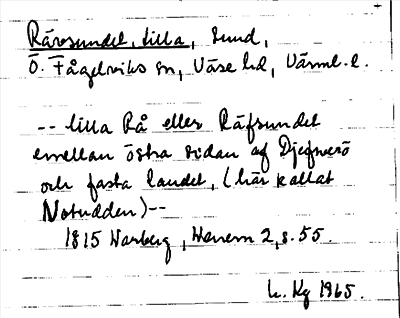 Råresundet, lilla, sund,
Ö. Fågelviks sn, Väse hd, Värml. l.
-- lilla Rå eller Räfsundet
emellan östra sidan af Djefnerö
och fasta landet, (här kallat
Notudden) --
1815 Warberg, Wenern 2, s. 55.
Kg 1965.